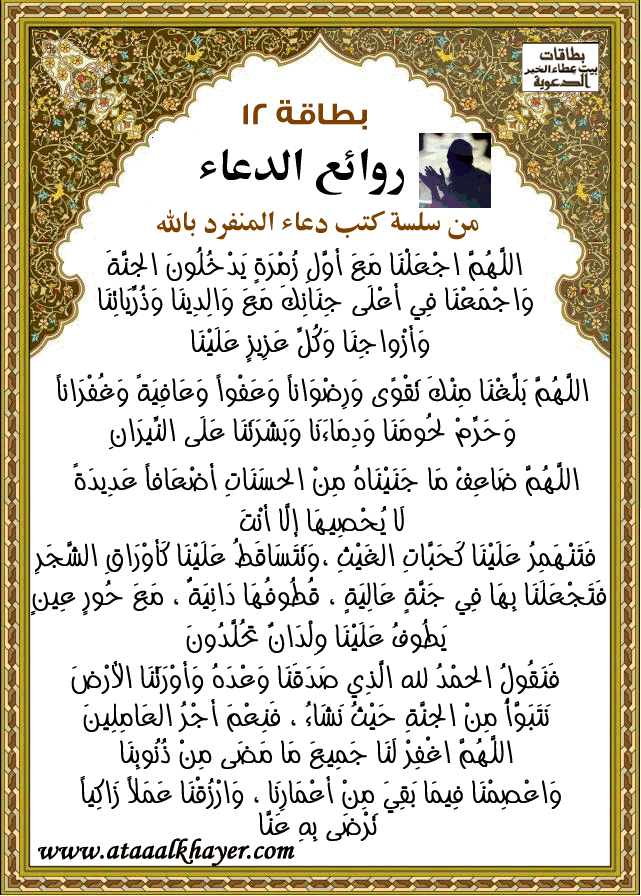 بطاقات
بيت عطاء الخير
الدعوية
بطاقة ١٢
روائع الدعاء
من سلسة كتب دعاء المنفرد بالله
اللَّهُمَّ اجْعَلْنَا مَعَ أَوَّلِ زُمْرَةٍ يَدْخُلُونَ الجَنَّةَ
وَاجْمَعْنَا فِي أَعْلَى جِنَانِكَ مَعَ وَالِدِينَا وَذُرِّيَاتِنَا
وَأَزْوَاجِنَا وَكُلِّ عَزِيزٍ عَلَيْنَا
اللَّهُمَّ بَلِّغْنَا مِنْكَ تَقْوًى وَرِضْوَاناً وَعَفْواً وَعَافِيَةً وَغُفْرَاناً
وَحَرِّمْ لُحُومَنَا وَدِمَاءَنَا وَبَشَرَتَنَا عَلَى النِّيرَانِ
اللَّهُمَّ ضَاعِفْ مَا جَنَيْنَاهُ مِنْ الحَسَنَاتِ أَضْعَافاً عَدِيدَةً
لَا يُحْصِيهَا إِلَّا أَنْتَ
فَتَنْهَمِرُ عَلَيْنَا كَحَبَّاتِ الغَيْثِ ،وَتَتَسَاقَطُ عَلَيْنَا كَأَوْرَاقِ الشَّجَرِ
فَتَجْعَلَنَا بِهَا فِي جَنَّةٍ عَالِيَةٍ ، قُطُوفُهَا دَانِيَةٌ ، مَعَ حُورٍ عِينٍ
يَطُوفُ عَلَيْنَا وِلْدَانٌ مُخَلَّدُونَ
فَنَقُولُ الحَمْدُ لله الَّذِي صَدَقَنَا وَعْدَهُ وَأَوْرَثَنَا الأَرْضَ
نَتَبَوَّأُ مِنْ الجَنَّةِ حَيْثُ نَشَاءُ ، فَنِعْمَ أَجْرُ العَامِلِينَ
اللَّهُمَّ اغْفِرْ لَنَا جَمِيعَ مَا مَضَى مِنْ ذُنُوبِنَا
وَاعْصِمْنَا فِيمَا بَقِيَ مِنْ أَعْمَارِنَا ، وَارْزُقْنَا عَمَلاً زَاكِياً
تَرْضَى بِهِ عَنَّا
www.ataaalkhayer.com